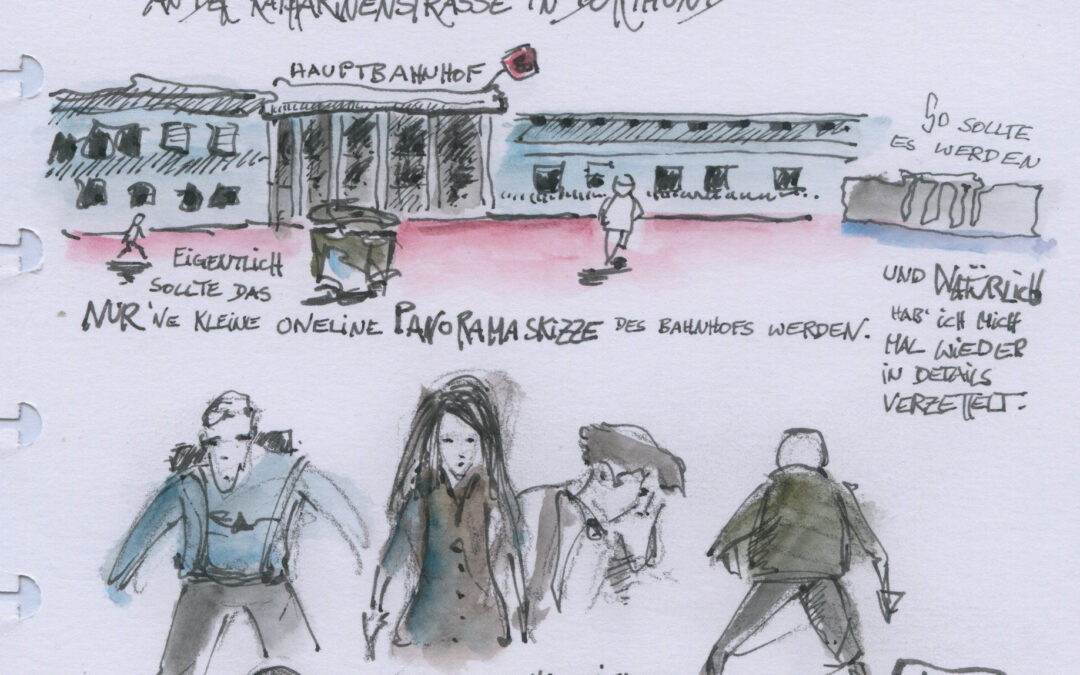 AN DER KATHARINENSTRASSE IN DORTMUND
HAUPTBAHNHOF
SO SOLLTE
ES WERDEN
EIGENTLICH
SOLLTE DAS
NUR 'NE KLEINE ONELINE PANORAMASKIZZE DES BAHNHOFS WERDEN.
UND NATÜRLICH
HAB' ICH MICH
MAL WIEDER
IN DETAILS
VERZETTELT.